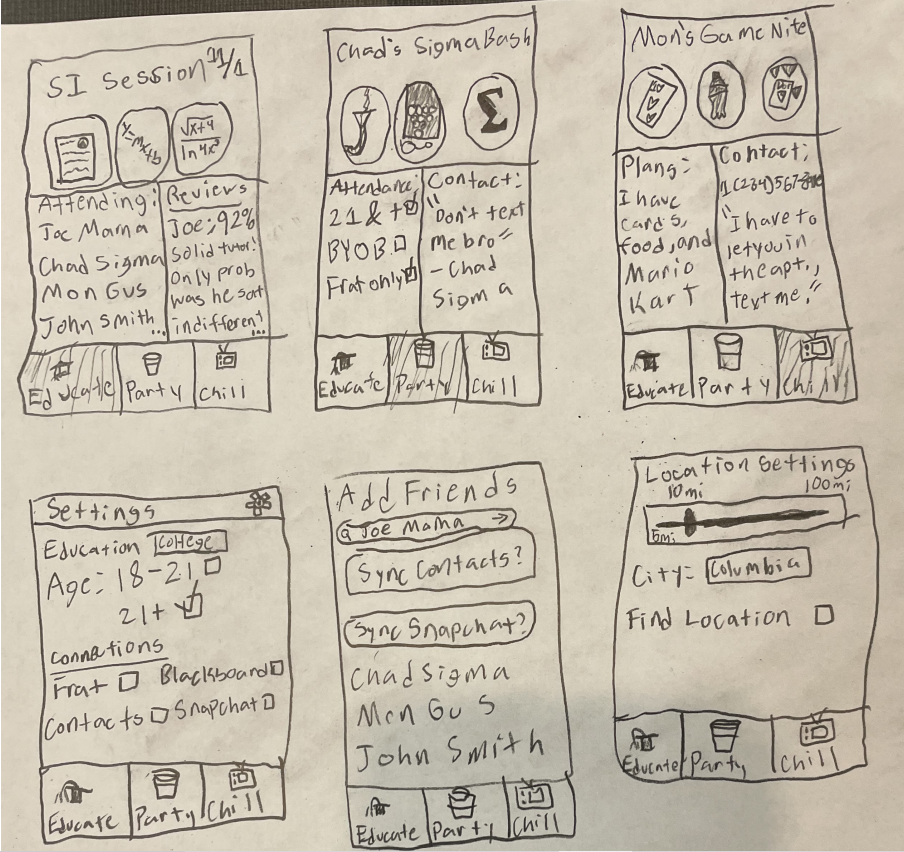 SI Session 11/1
y=mx+b
√x+4
ln4x³
Attending:
Joe Mama
Chad Sigma
Mon Gus
John Smith...
Reviews
Joe: 92%
Solid tutor!
Only prob
was he sort
indifferent
...
Educate
Party
Chill
Chad's Sigma Bash
Σ
Attendance:
21 & +
BYOB
Frat only
Contact:
"Don't text
me bro"
- Chad
Sigma
Educate
Party
Chill
Mon's Game Nite
Plans:
I have
cards,
food, and
Mario
Kart
Contact:
"I have to
let you in
the apt.,
text me."
Educate
Party
Chill
Settings
Education College
Age: 18-21
21+
Connections
Frat Blackboard
Contacts Snapchat
Educate
Party
Chill
Add Friends
Joe Mama →
Sync Contacts?
Sync Snapchat?
Chad Sigma
Mon Gus
John Smith
Educate
Party
Chill
Location Settings
10mi 100mi
5mi
City: Columbia
Find Location
Educate
Party
Chill